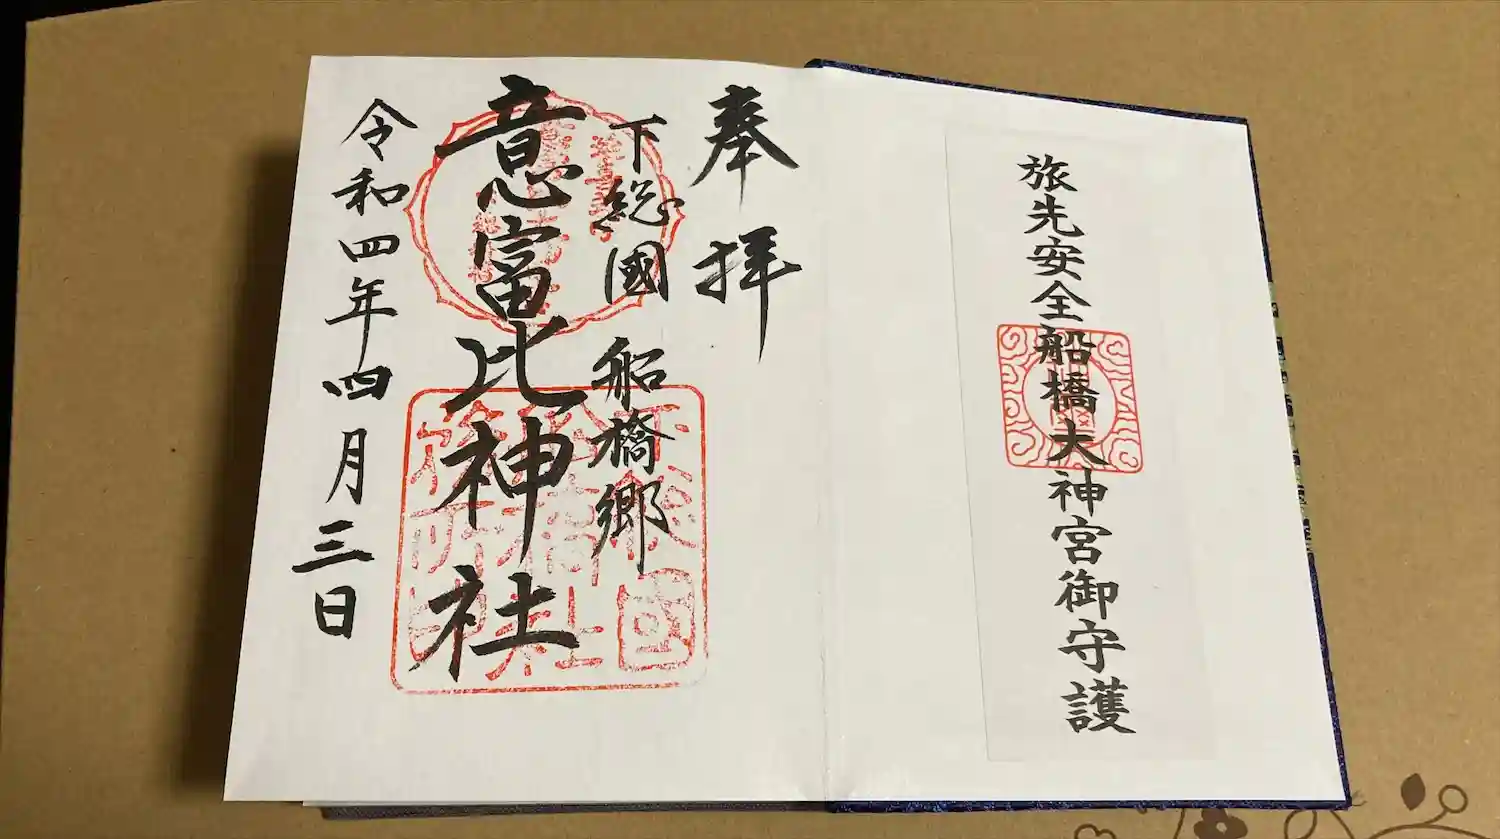 旅先安全船橋大神宮御守護
奉拝
下総國 船橋郷
意富比神社
令和四年四月三日